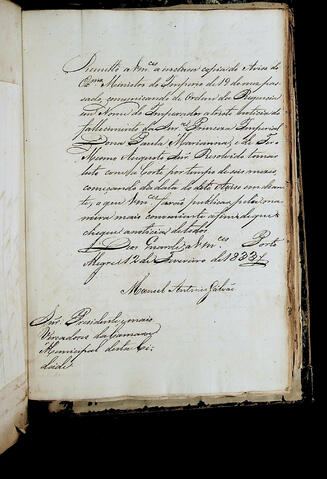 Remetto a Vm.ces a incluza copia do Aviso do
Ex.mo Ministro do Imperio de 19 do mez pas
sado, comunicando de Ordem da Regencia
em Nome do Imperador a triste noticia do
fallecimento da Snr.a Princeza Imperial
Dona Paula Marianna, e de Ter
o Mesmo Augusto Snr Resolvido tomar
luto com a Corte por tempo de seis mezes,
começando da data deste Aviso em dian
te, o que Vm.ces farão publicar pela ma
neira mais conveniente afim de que
chegue a noticia de todos.
Deos Guarde a Vm.ces Porto
Alegre 12 de Fevereiro de 1833
Manuel Antonio Galvão
Snr.s Presidente, e mais
Vereadores da Camara
Municipal desta Ci-
dade